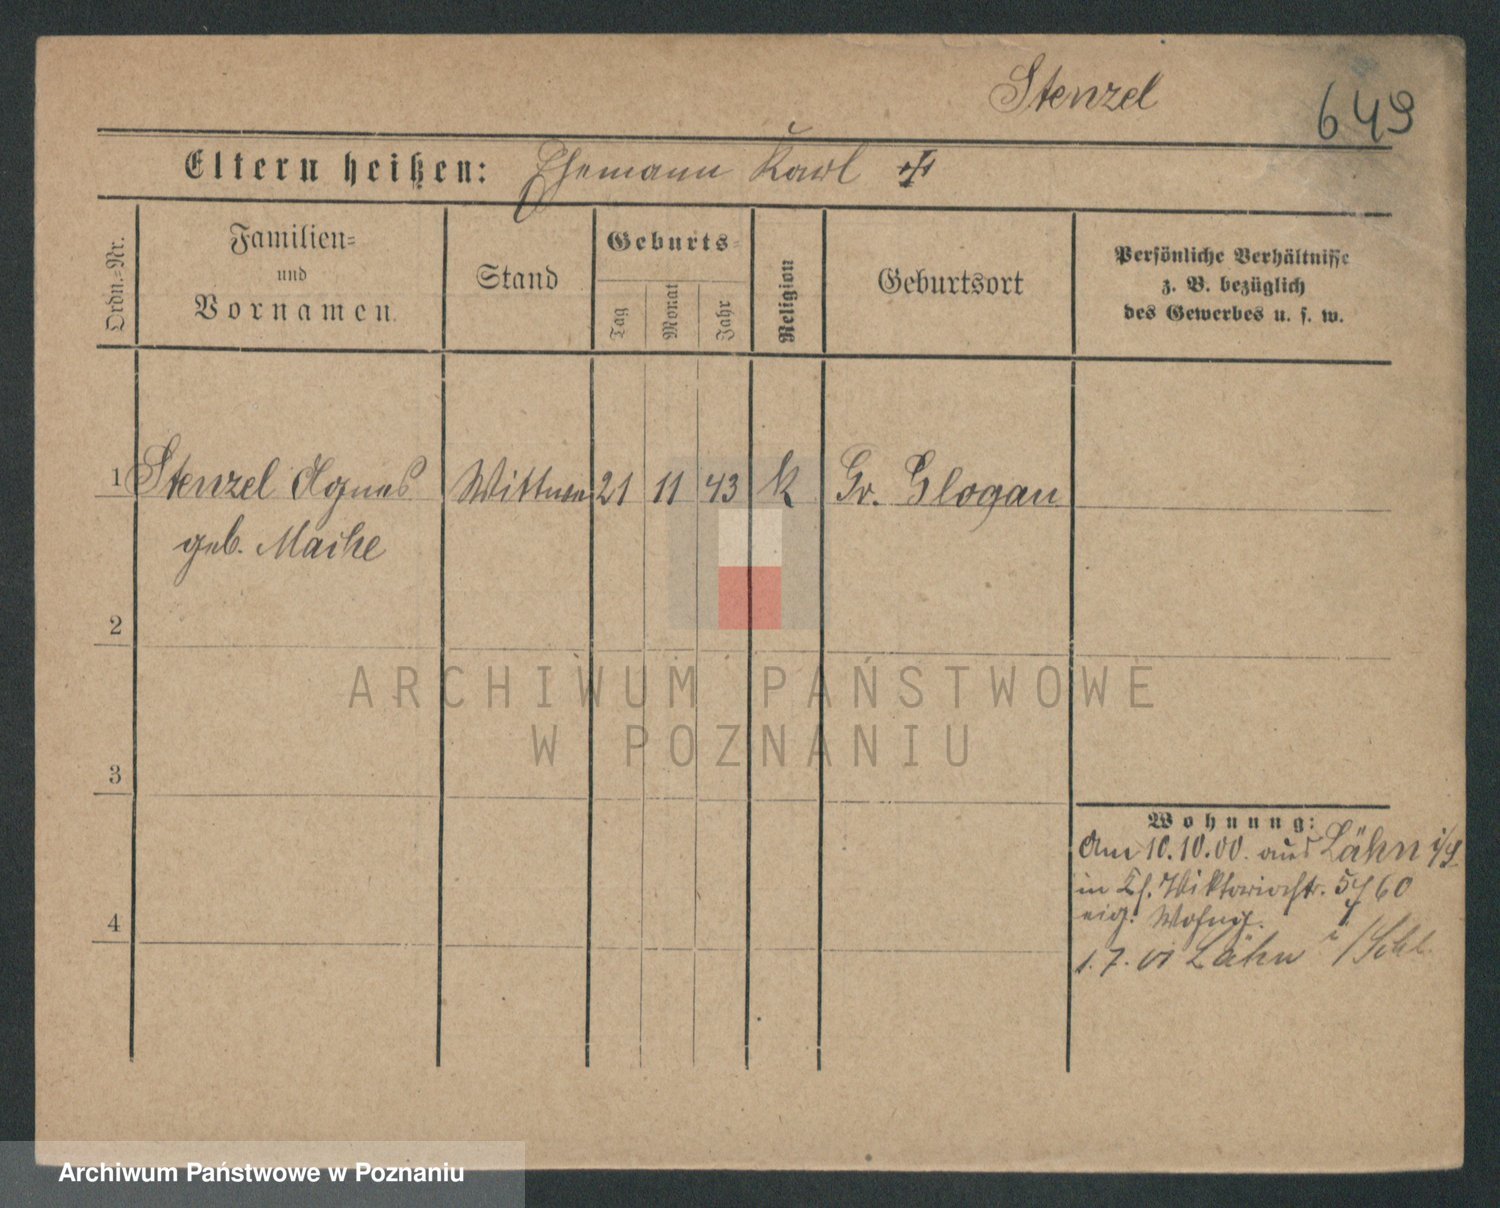 Stenzel
649
Eltern heißen: Ehemann Karl
Ordn.=Nr.
Familien=
und
Vornamen.
Stand
Geburts=
Tag
Monat
Jahr
Religion
Geburtsort
Persönliche Verhältnisse
z. B. bezüglich
des Gewerbes u. s. w.
1 Stenzel Agnes Wittwe 21 11 43 k Gr. Glogau
geb. Maihe
2
ARCHIWUM PAŃSTWOWE
W POZNANIU
3
Wohnung:
Am 10.10.00. aus Lähn i/S
in Viktoriastr.
eig. Wohng.
4
1.7.01 Lähn i/Schl.
Archiwum Państwowe w Poznaniu